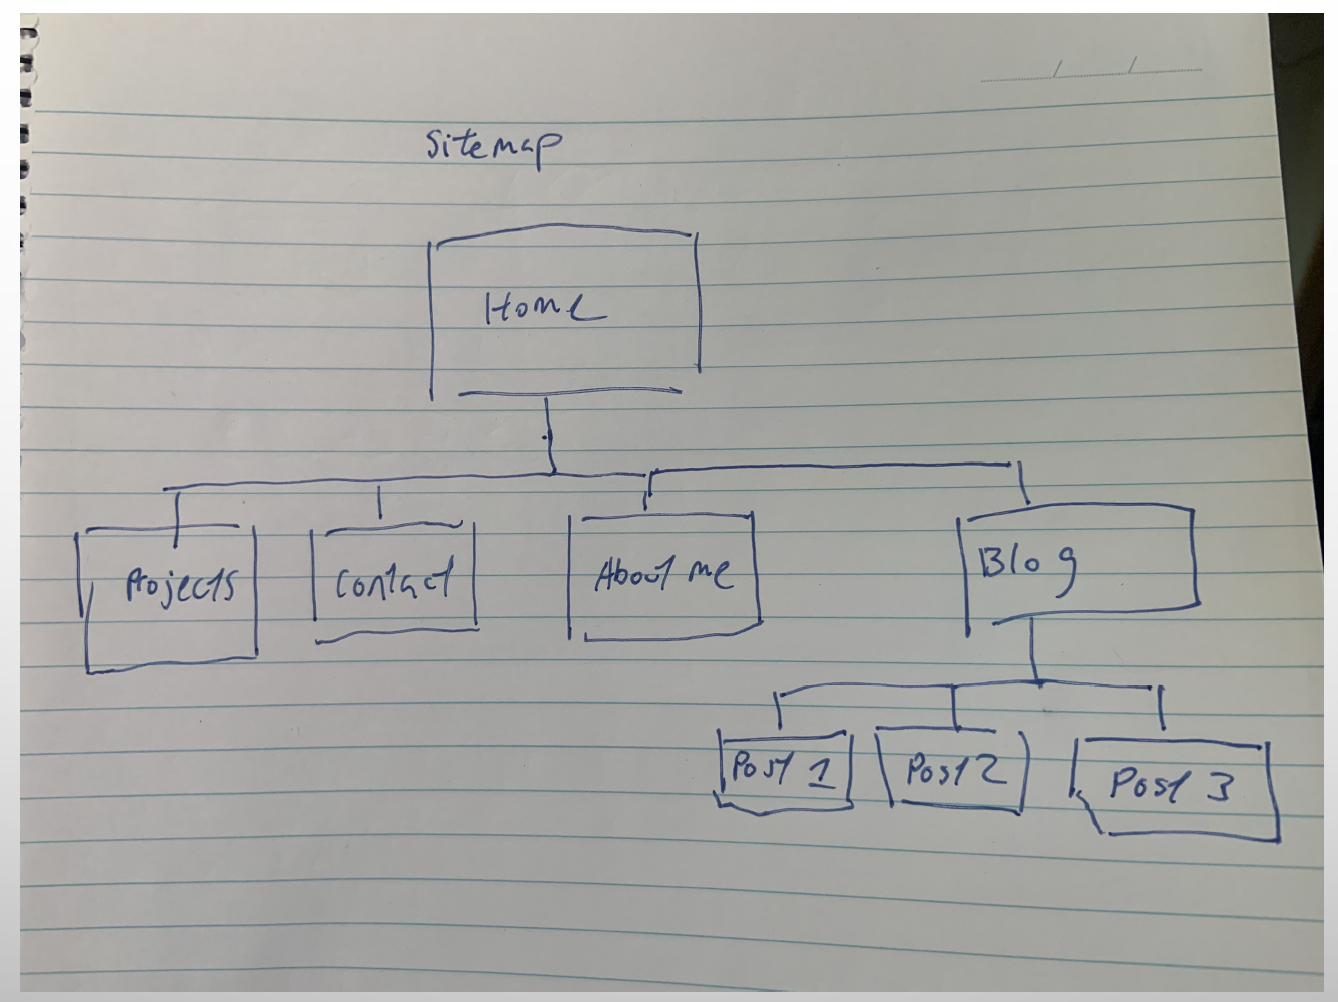 Sitemap
Home
Projects
Contact
About me
Blog
Post 1
Post 2
Post 3